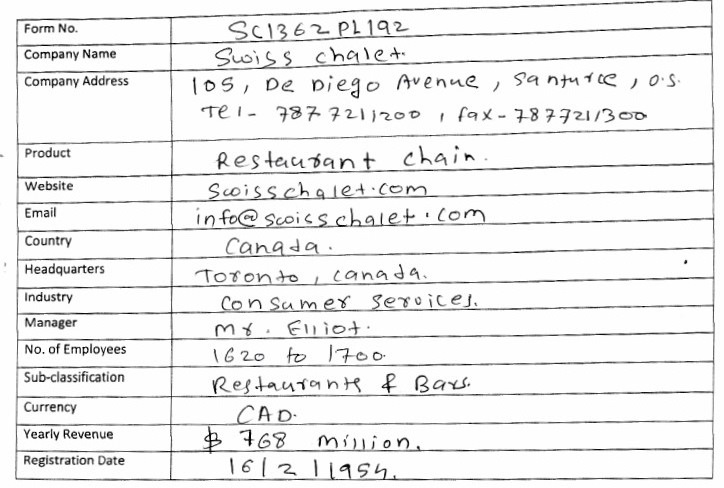 Form No. SC1362PL192
Company Name Swiss chalet.
Company Address 105, De Diego Avenue, Santurce, O.S.
Tel- 787 7211200, fax- 7877211300
Product Restaurant chain.
Website Swisschalet.com
Email info@swisschalet.com
Country Canada.
Headquarters Toronto, Canada.
Industry Consumer Services.
Manager Mr. Elliot.
No. of Employees 1620 to 1700.
Sub-classification Restaurants & Bars.
Currency CAD.
Yearly Revenue $ 768 million.
Registration Date 16/2/1954.